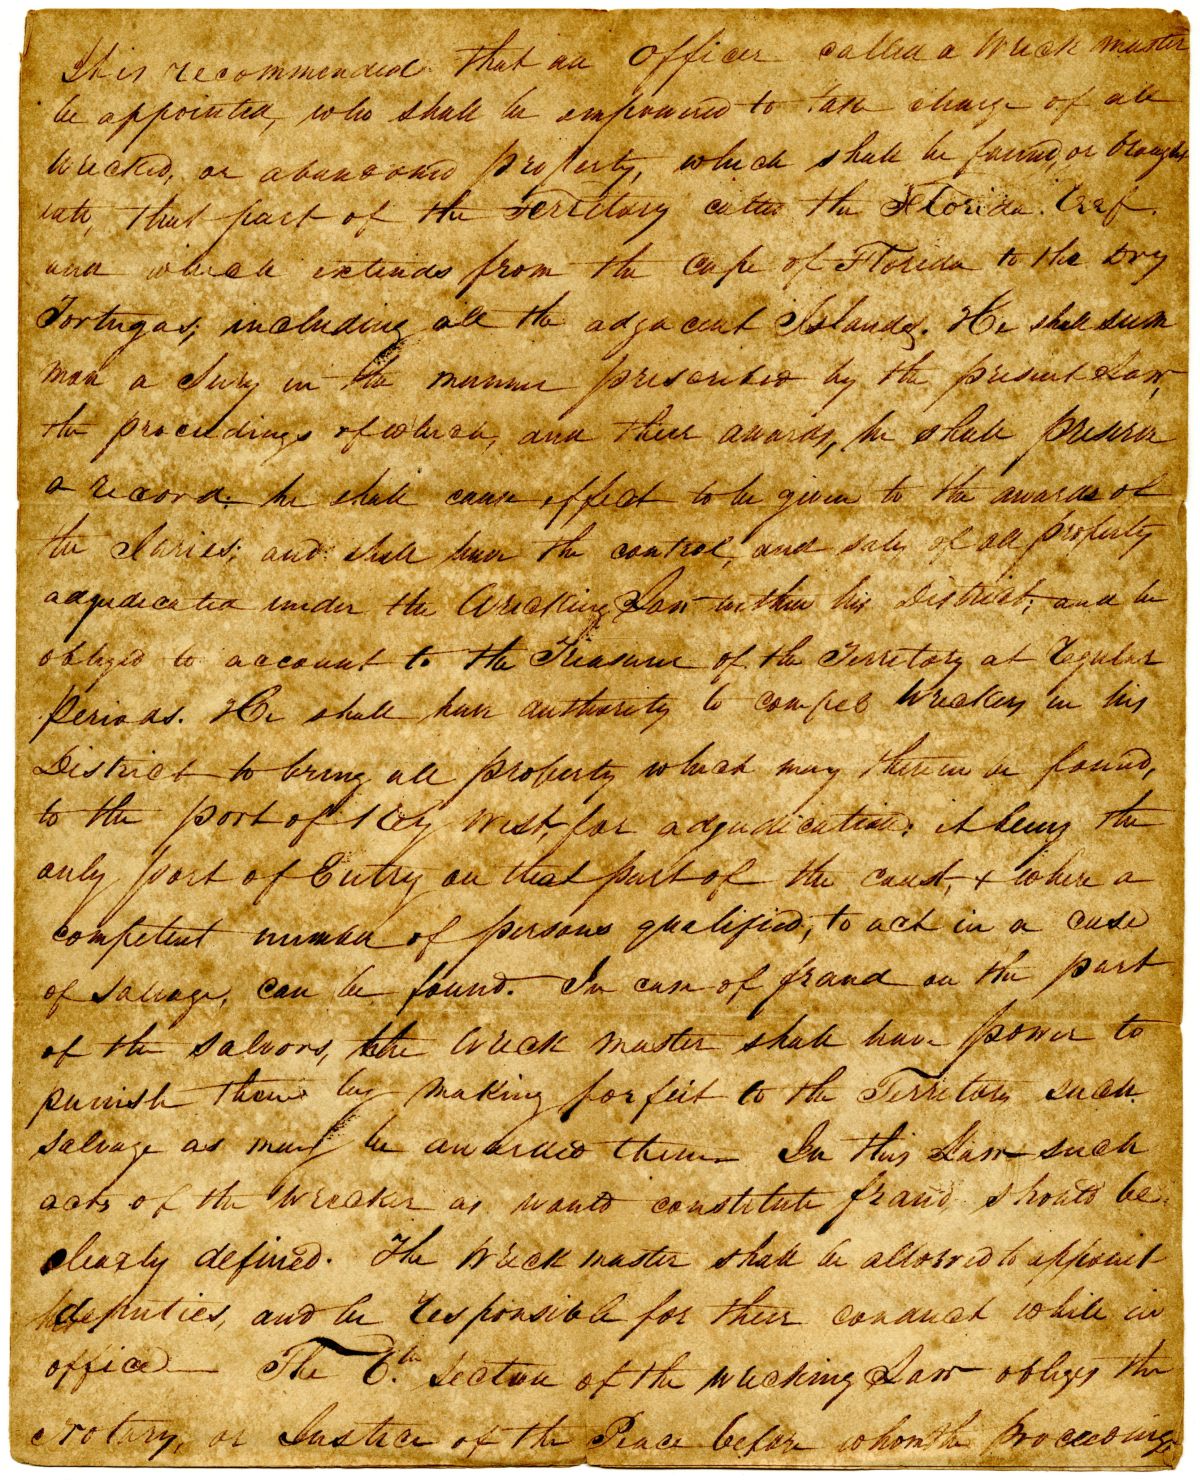 It is recommended that an Officer called a Wreck master
be appointed, who shall be empowered to take charge of all
Wrecked, or abandoned property, which shall be found, or brought
into, that part of the Territory called the Florida Reef.
and which extends from the Cape of Florida to the Dry
Tortugas; including all the adjacent Islands. He shall sum
mon a Jury in the manner prescribed by the present Law,
the proceedings of which, and their awards, he shall preserve
a record. he shall cause effect to be given to the awards of
the Juries; and shall have the control, and sale, of all property
adjudicated under the Wrecking Law within his District; and be
obliged to account to the Treasurer of the Territory at regular
Periods. He shall have authority to compel Wreckers in his
District to bring all property which may therein be found,
to the port of Key West, for adjudication; it being the
only port of Entry on that part of the coast, & where a
competent number of persons qualified, to act in a case
of Salvage, can be found. In case of fraud on the part
of the Salvors, the Wreck Master shall have power to
punish them by making forfeit to the Territory such
salvage as may be awarded them. In this Law such
acts of the Wrecker as would constitute fraud should be
clearly defined. The Wreck master shall be allowed to appoint
deputies, and be responsible for their conduct while in
office. The 6th. Section of the wrecking Law obliges the
Notary, or Justice of the Peace before whom the proceedings